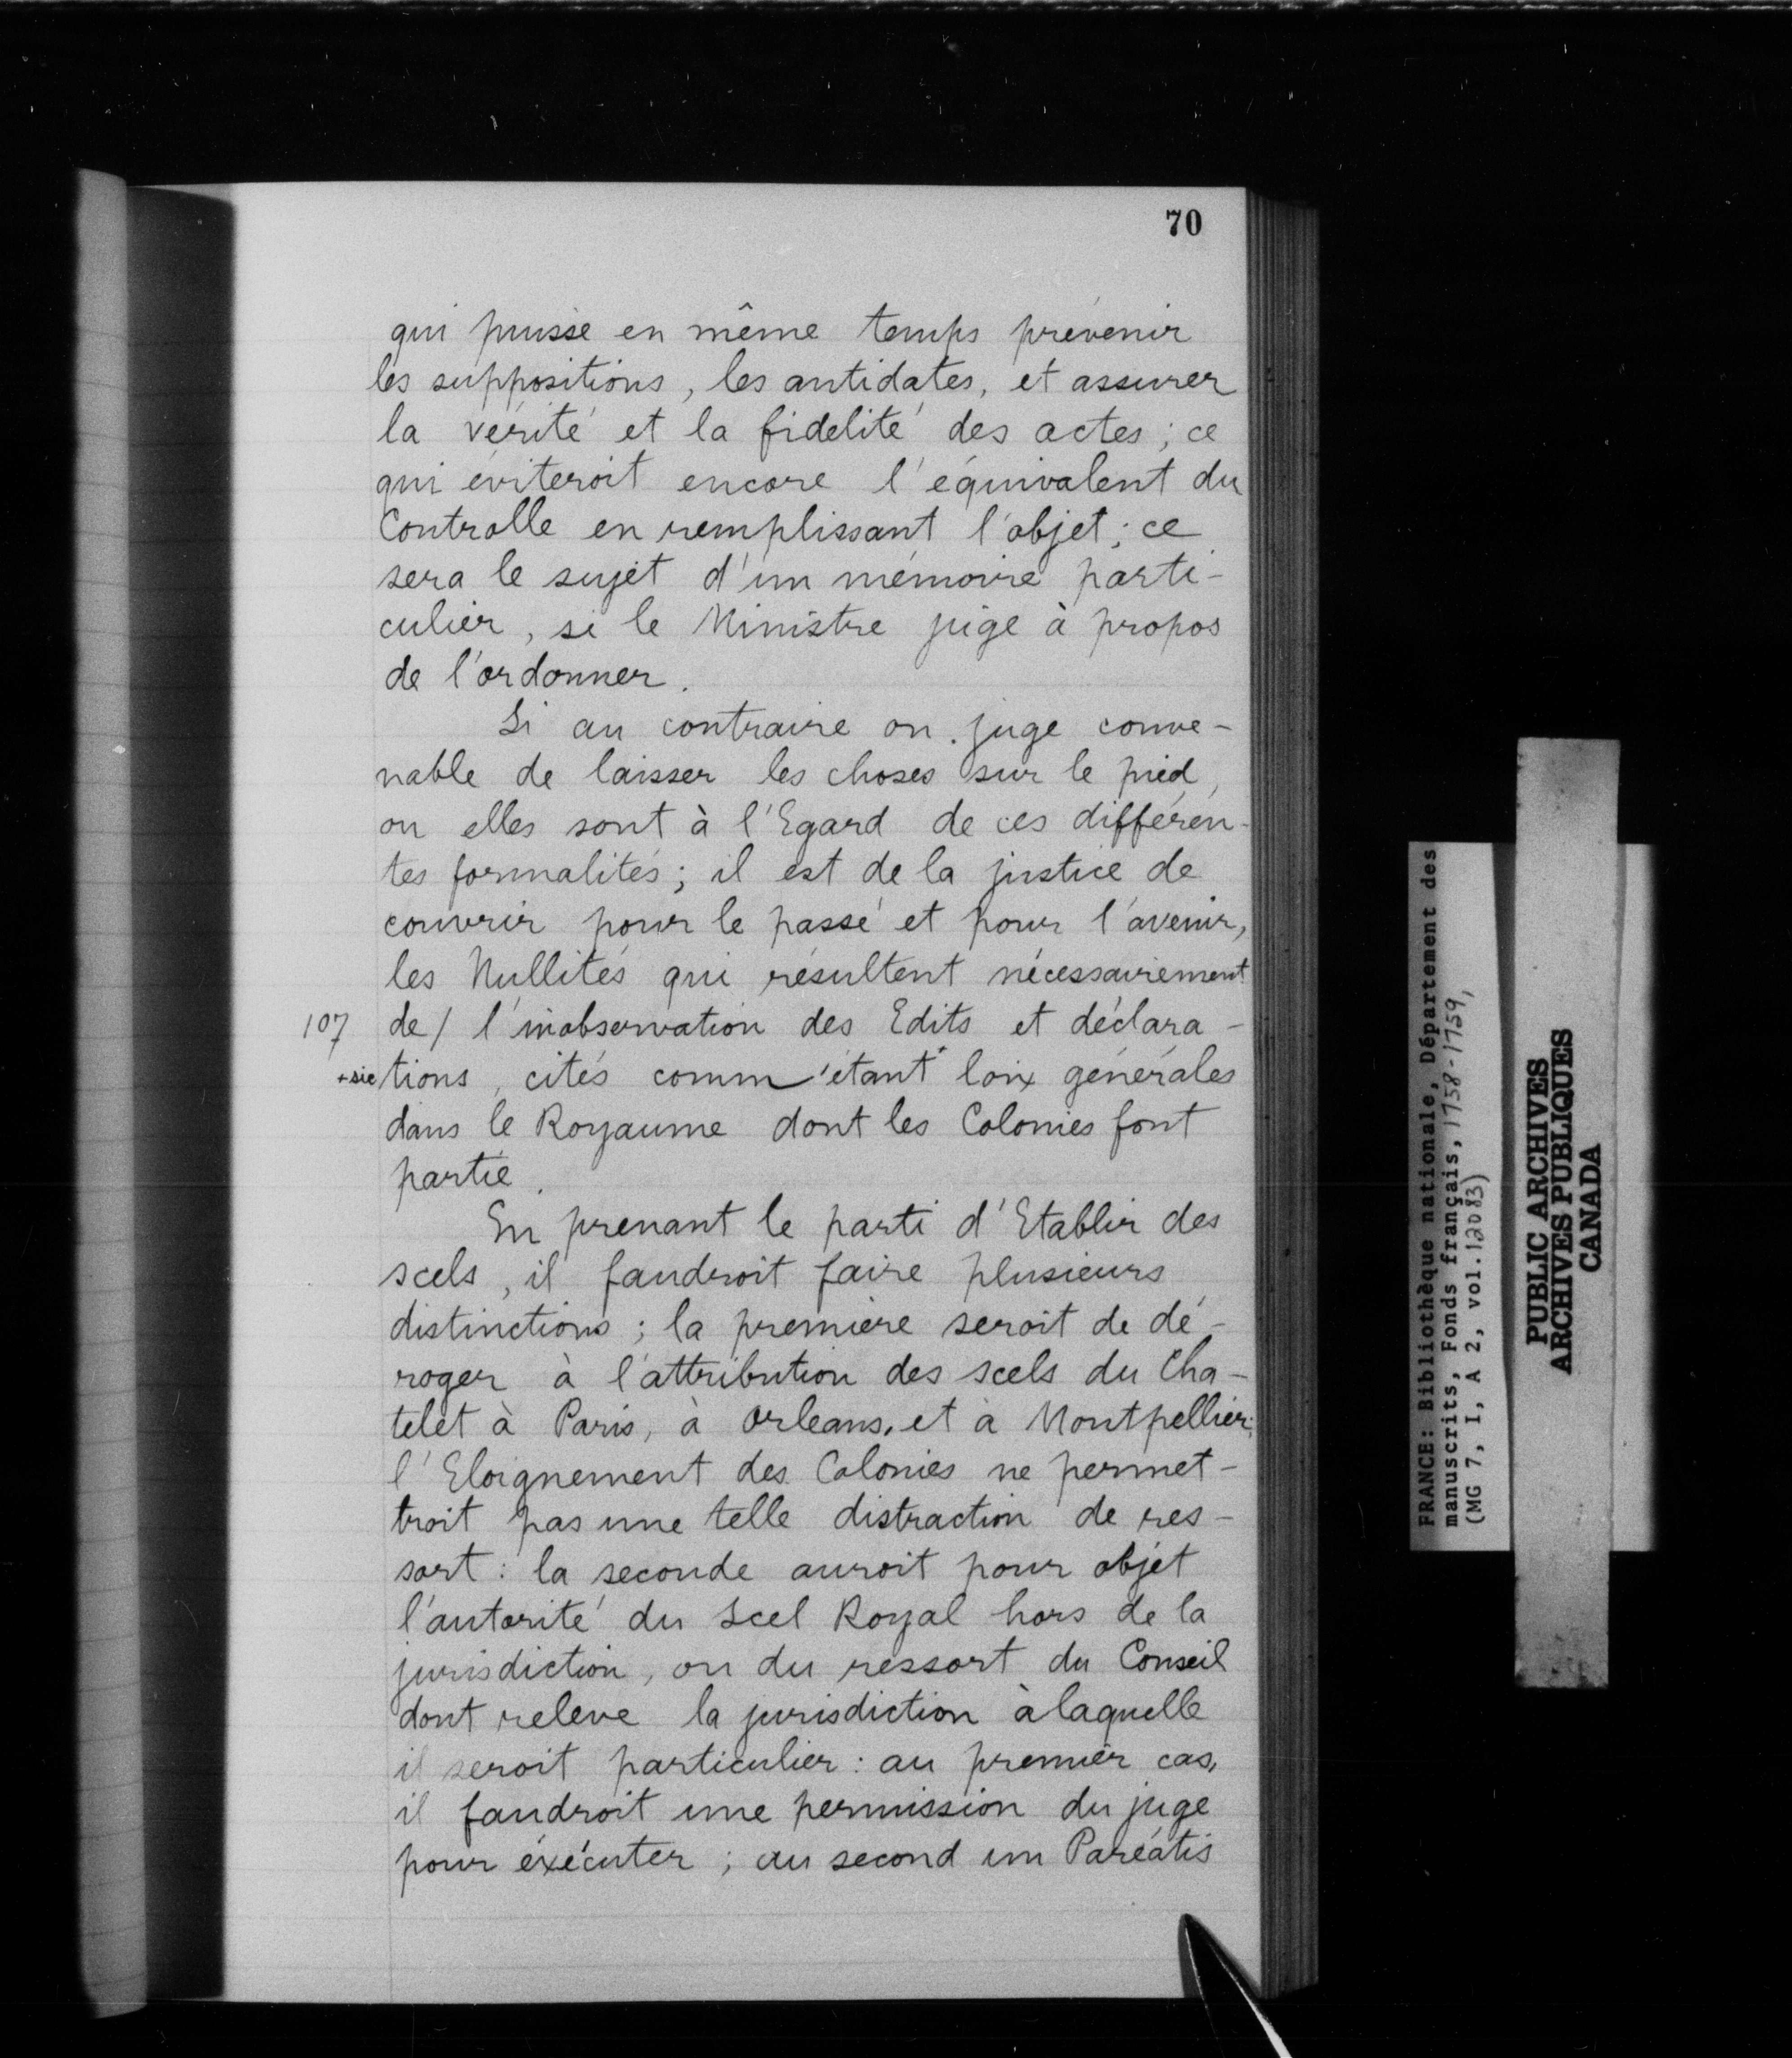 70
qui puisse en même temps prévenir
les suppositions, les antidates, et assurer
la vérité et la fidelité des actes; ce
qui éviteroit encore l'équivalent du
Controlle en remplissant l'objet; ce
sera le sujet d'un mémoire parti-
culier, si le Ministre juge à propos
de l'ordonner.
Si au contraire on juge conve-
nable de laisser les choses sur le pied,
ou elles sont à l'Egard de ces différen-
tes formalités; il est de la justice de
couvrir pour le passé et pour l'avenir,
les Nullités qui résultent nécessairement
107 de/ l'inobservation des Edits et déclara-
+sic tions, cités comm'étant+ loix générales
dans le Royaume dont les Colonies font
partie.
En prenant le parti d'Etablir des
scels, il faudroit faire plusieurs
distinctions; la première seroit de dé-
roger à l'attribution des scels du Cha-
telet à Paris, à Orleans, et à Montpellier;
l'Eloignement des Colonies ne permet-
troit pas une telle distraction de res-
sort: la seconde auroit pour objet
l'autorité du Scel Royal hors de la
jurisdiction, ou du ressort du Conseil
dont releve la jurisdiction à laquelle
il seroit particulier: au premier cas,
il faudroit une permission du juge
pour éxécuter; au second un Paréatis
FRANCE: Bibliothèque nationale, Département des
manuscrits, Fonds français, 1758-1759,
(MG 7, I, A 2, vol. 12083)
PUBLIC ARCHIVES
ARCHIVES PUBLIQUES
CANADA